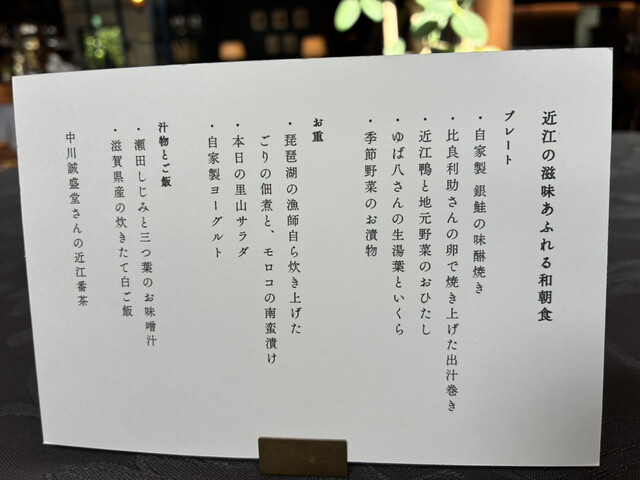 近江の滋味あふれる和朝食
プレート
・自家製 銀鮭の味醂焼き
・比良利助さんの卵で焼き上げた出汁巻き
・近江鴨と地元野菜のおひたし
・ゆば八さんの生湯葉といくら
・季節野菜のお漬物
お重
・琵琶湖の漁師自ら炊き上げた
ごりの佃煮と、モロコの南蛮漬け
・本日の里山サラダ
・自家製ヨーグルト
汁物とご飯
・瀬田しじみと三つ葉のお味噌汁
・滋賀県産の炊きたて白ご飯
中川誠盛堂さんの近江番茶